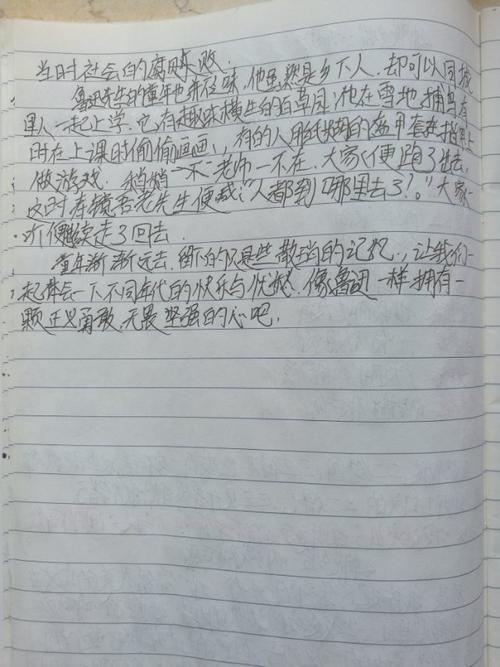 当时社会的腐败。
鲁迅先生的童年也亦有味,他虽然是乡下人,却可以同城
里人一起上学,它有趣味横生的百草园;他在雪地捕鸟,有
时在上课时偷偷画画,有的人用纸糊的盔甲套在指甲上
做游戏。稍稍一不老师一不在,大家便跑了出去,
这时寿镜吾老先生便喊:“人都到哪里去了!。”大家一
听便继续走了回去。
童年渐渐远去,留下的只是些散碎的记忆,让我们一
起体会一下不同年代的快乐与忧愁,像鲁迅一样拥有一
颗正义勇敢,无畏坚强的心吧。